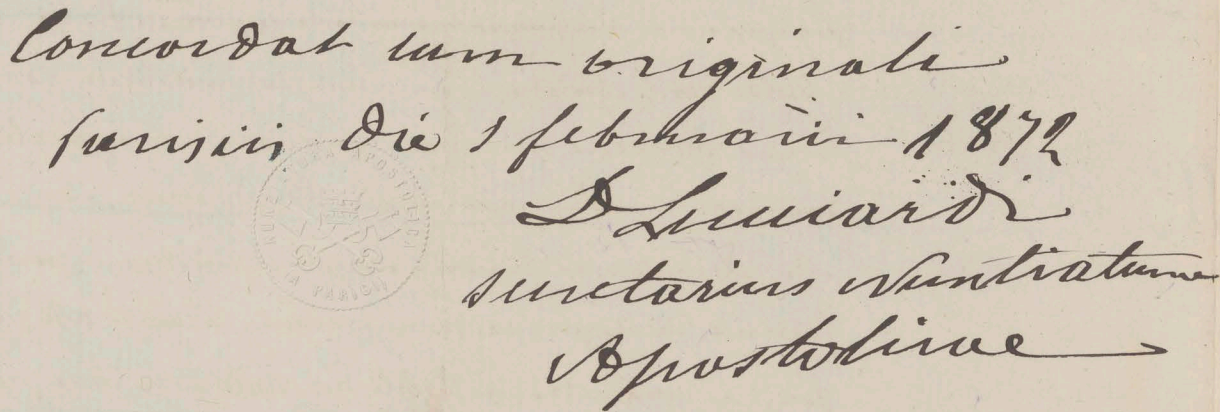 Concordat cum originali
Parisiis die 1 februarii 1872
D Lucciardi
secretarius Nuntiaturae
Apostolicae
NUNZIATURA APOSTOLICA
PARIGI